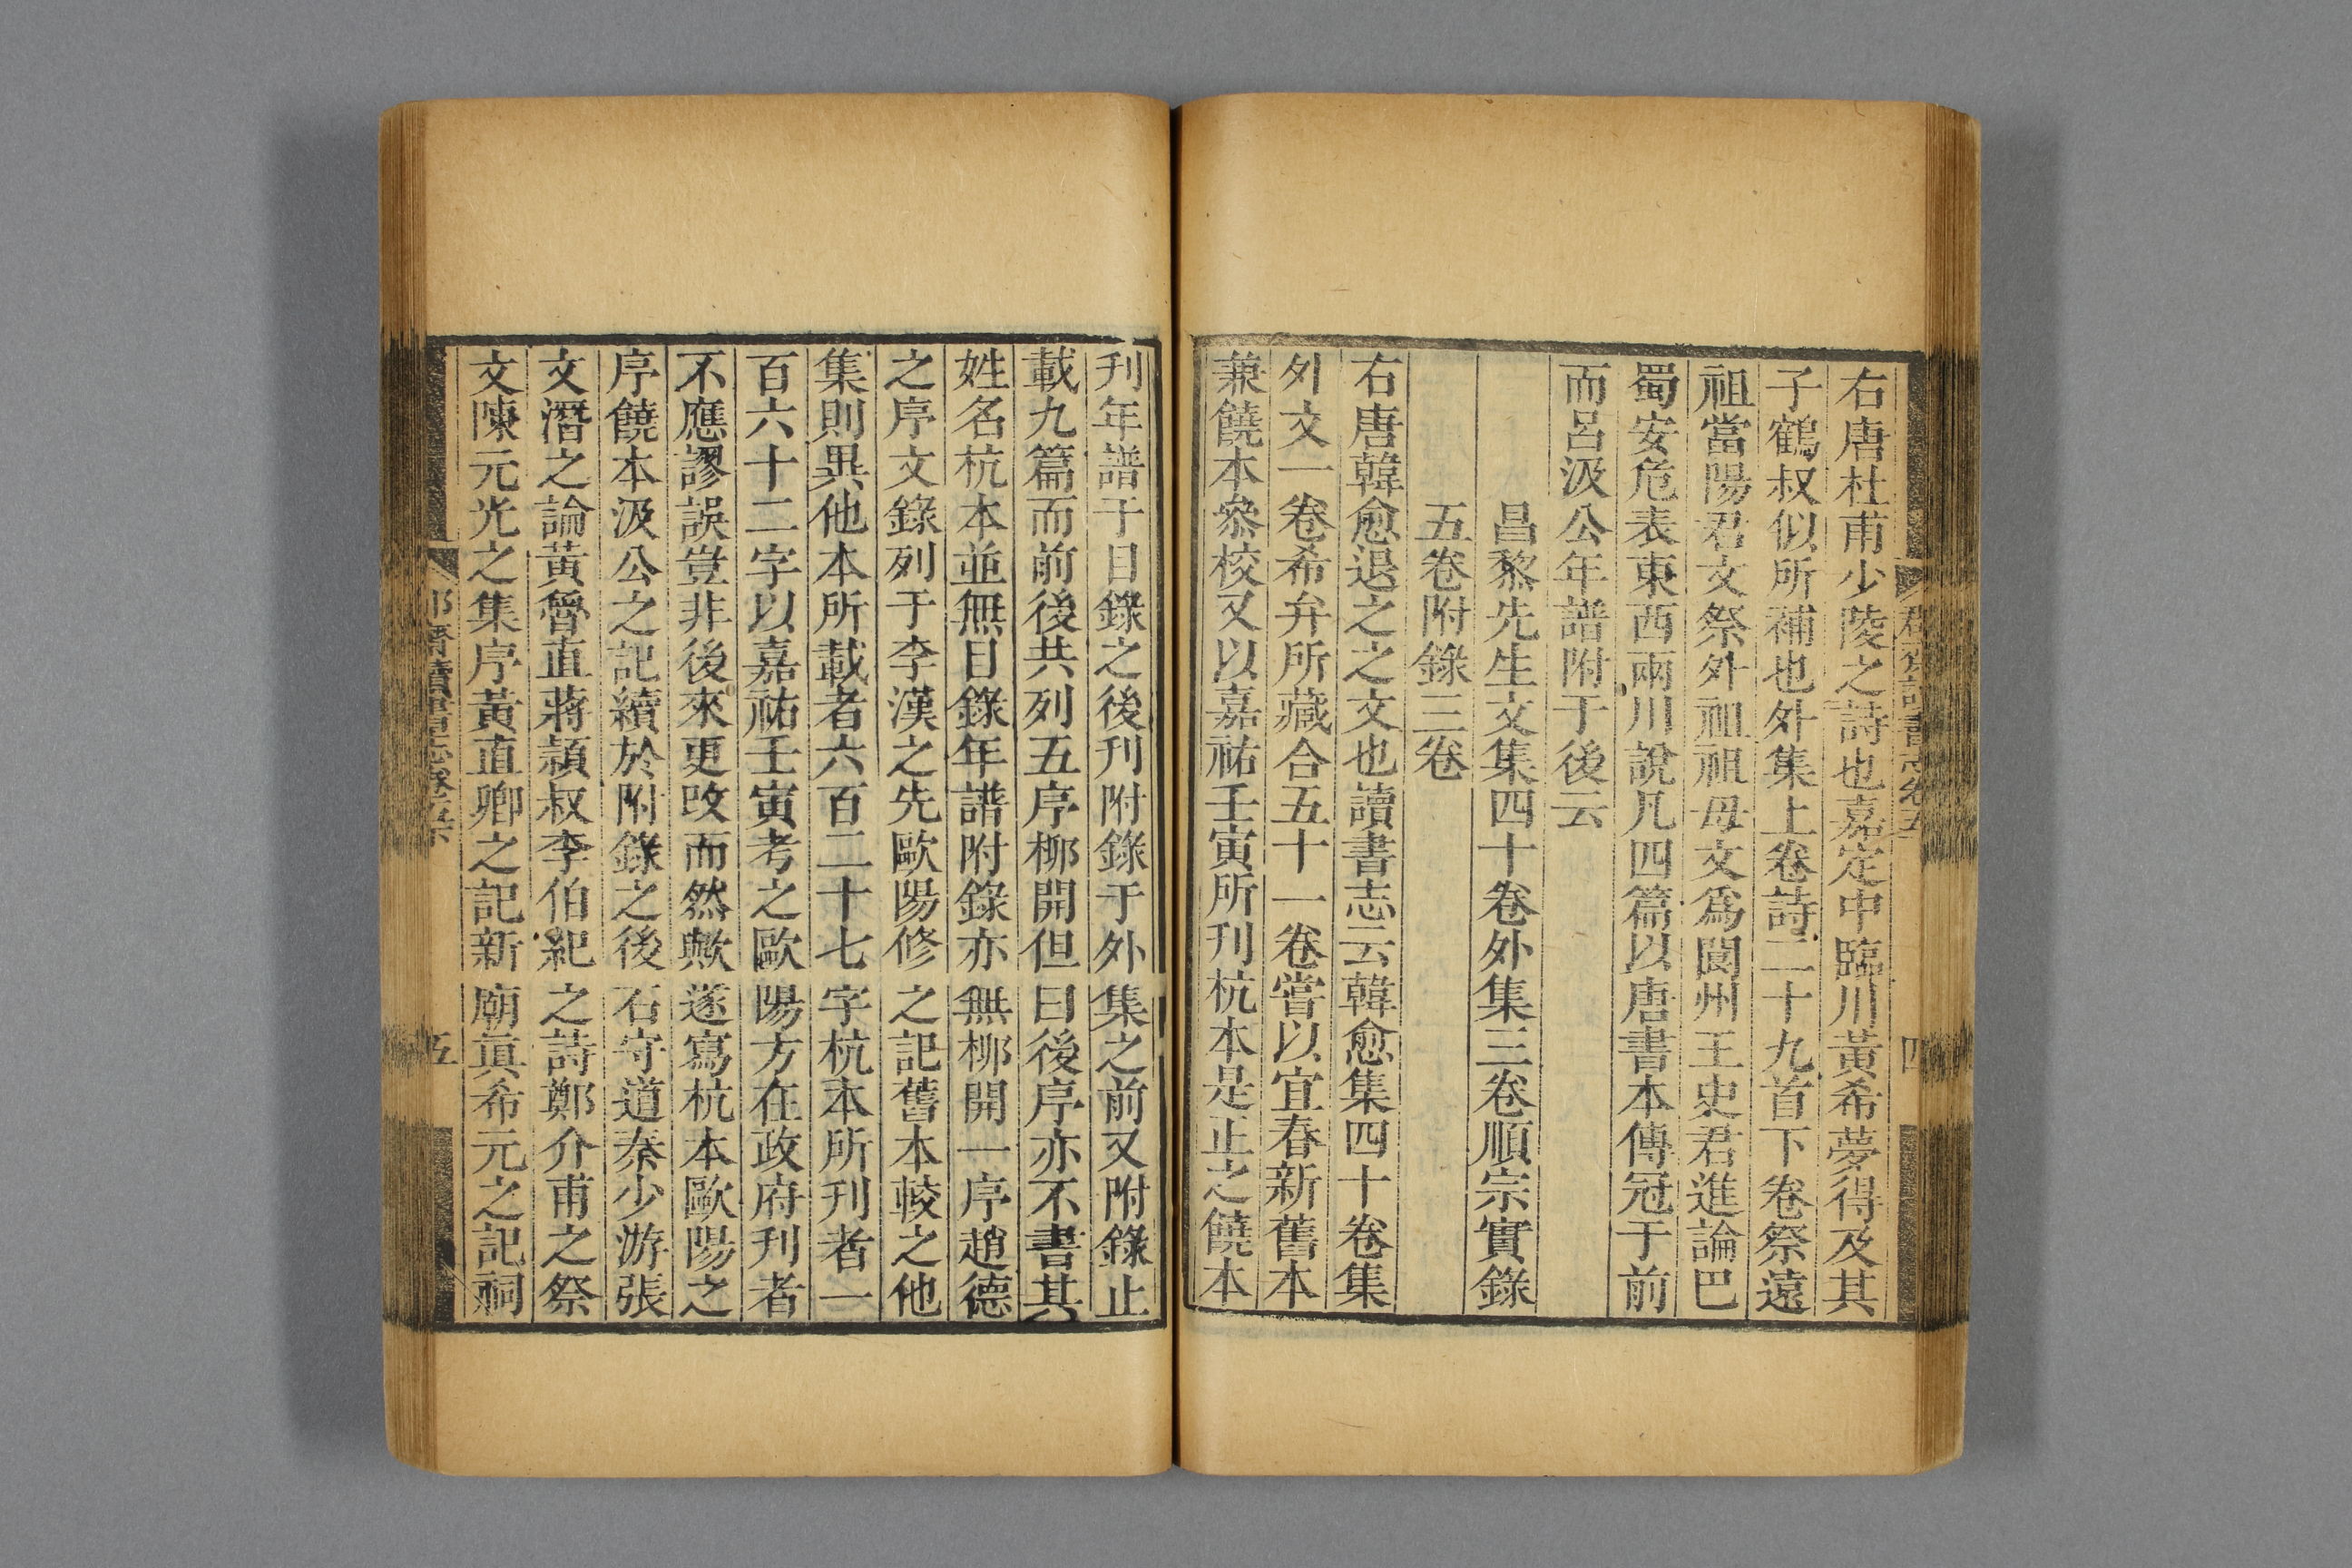 右唐杜甫少陵之詩也嘉定中臨川黃希夢得及其
子鶴叔似所補也外集上卷詩二十九首下卷祭遠
祖當陽君文祭外祖祖母文爲閬州王史君進論巴
蜀安危表東西兩川說凡四篇以唐書本傳冠于前
而呂汲公年譜附于後云
昌黎先生文集四十卷外集三卷順宗實錄
五卷附錄三卷
右唐韓愈退之之文也讀書志云韓愈集四十卷集
外文一卷希弁所藏合五十一卷嘗以宜春新舊本
兼饒本叅校又以嘉祐壬寅所刊杭本是正之饒本
刋年譜于目錄之後刊附錄于外集之前又附錄止
載九篇而前後共列五序桺開但曰後序亦不書其
姓名杭本並無目錄年譜附錄亦無桺開一序趙德
之序文錄列于李漢之先歐陽修之記舊本較之他
集則異他本所載者六百二十七字杭本所刋者一
百六十二字以嘉祐壬寅考之歐陽方在政府刋者
不應謬誤豈非後來更改而然歟遂寫杭本歐陽之
序饒本汲公之記續於附錄之後石守道秦少游張
文潛之論黃魯直蔣頴叔李伯紀之詩鄭介甫之祭
文陳元光之集序黃直卿之記新廟眞希元之記祠
五